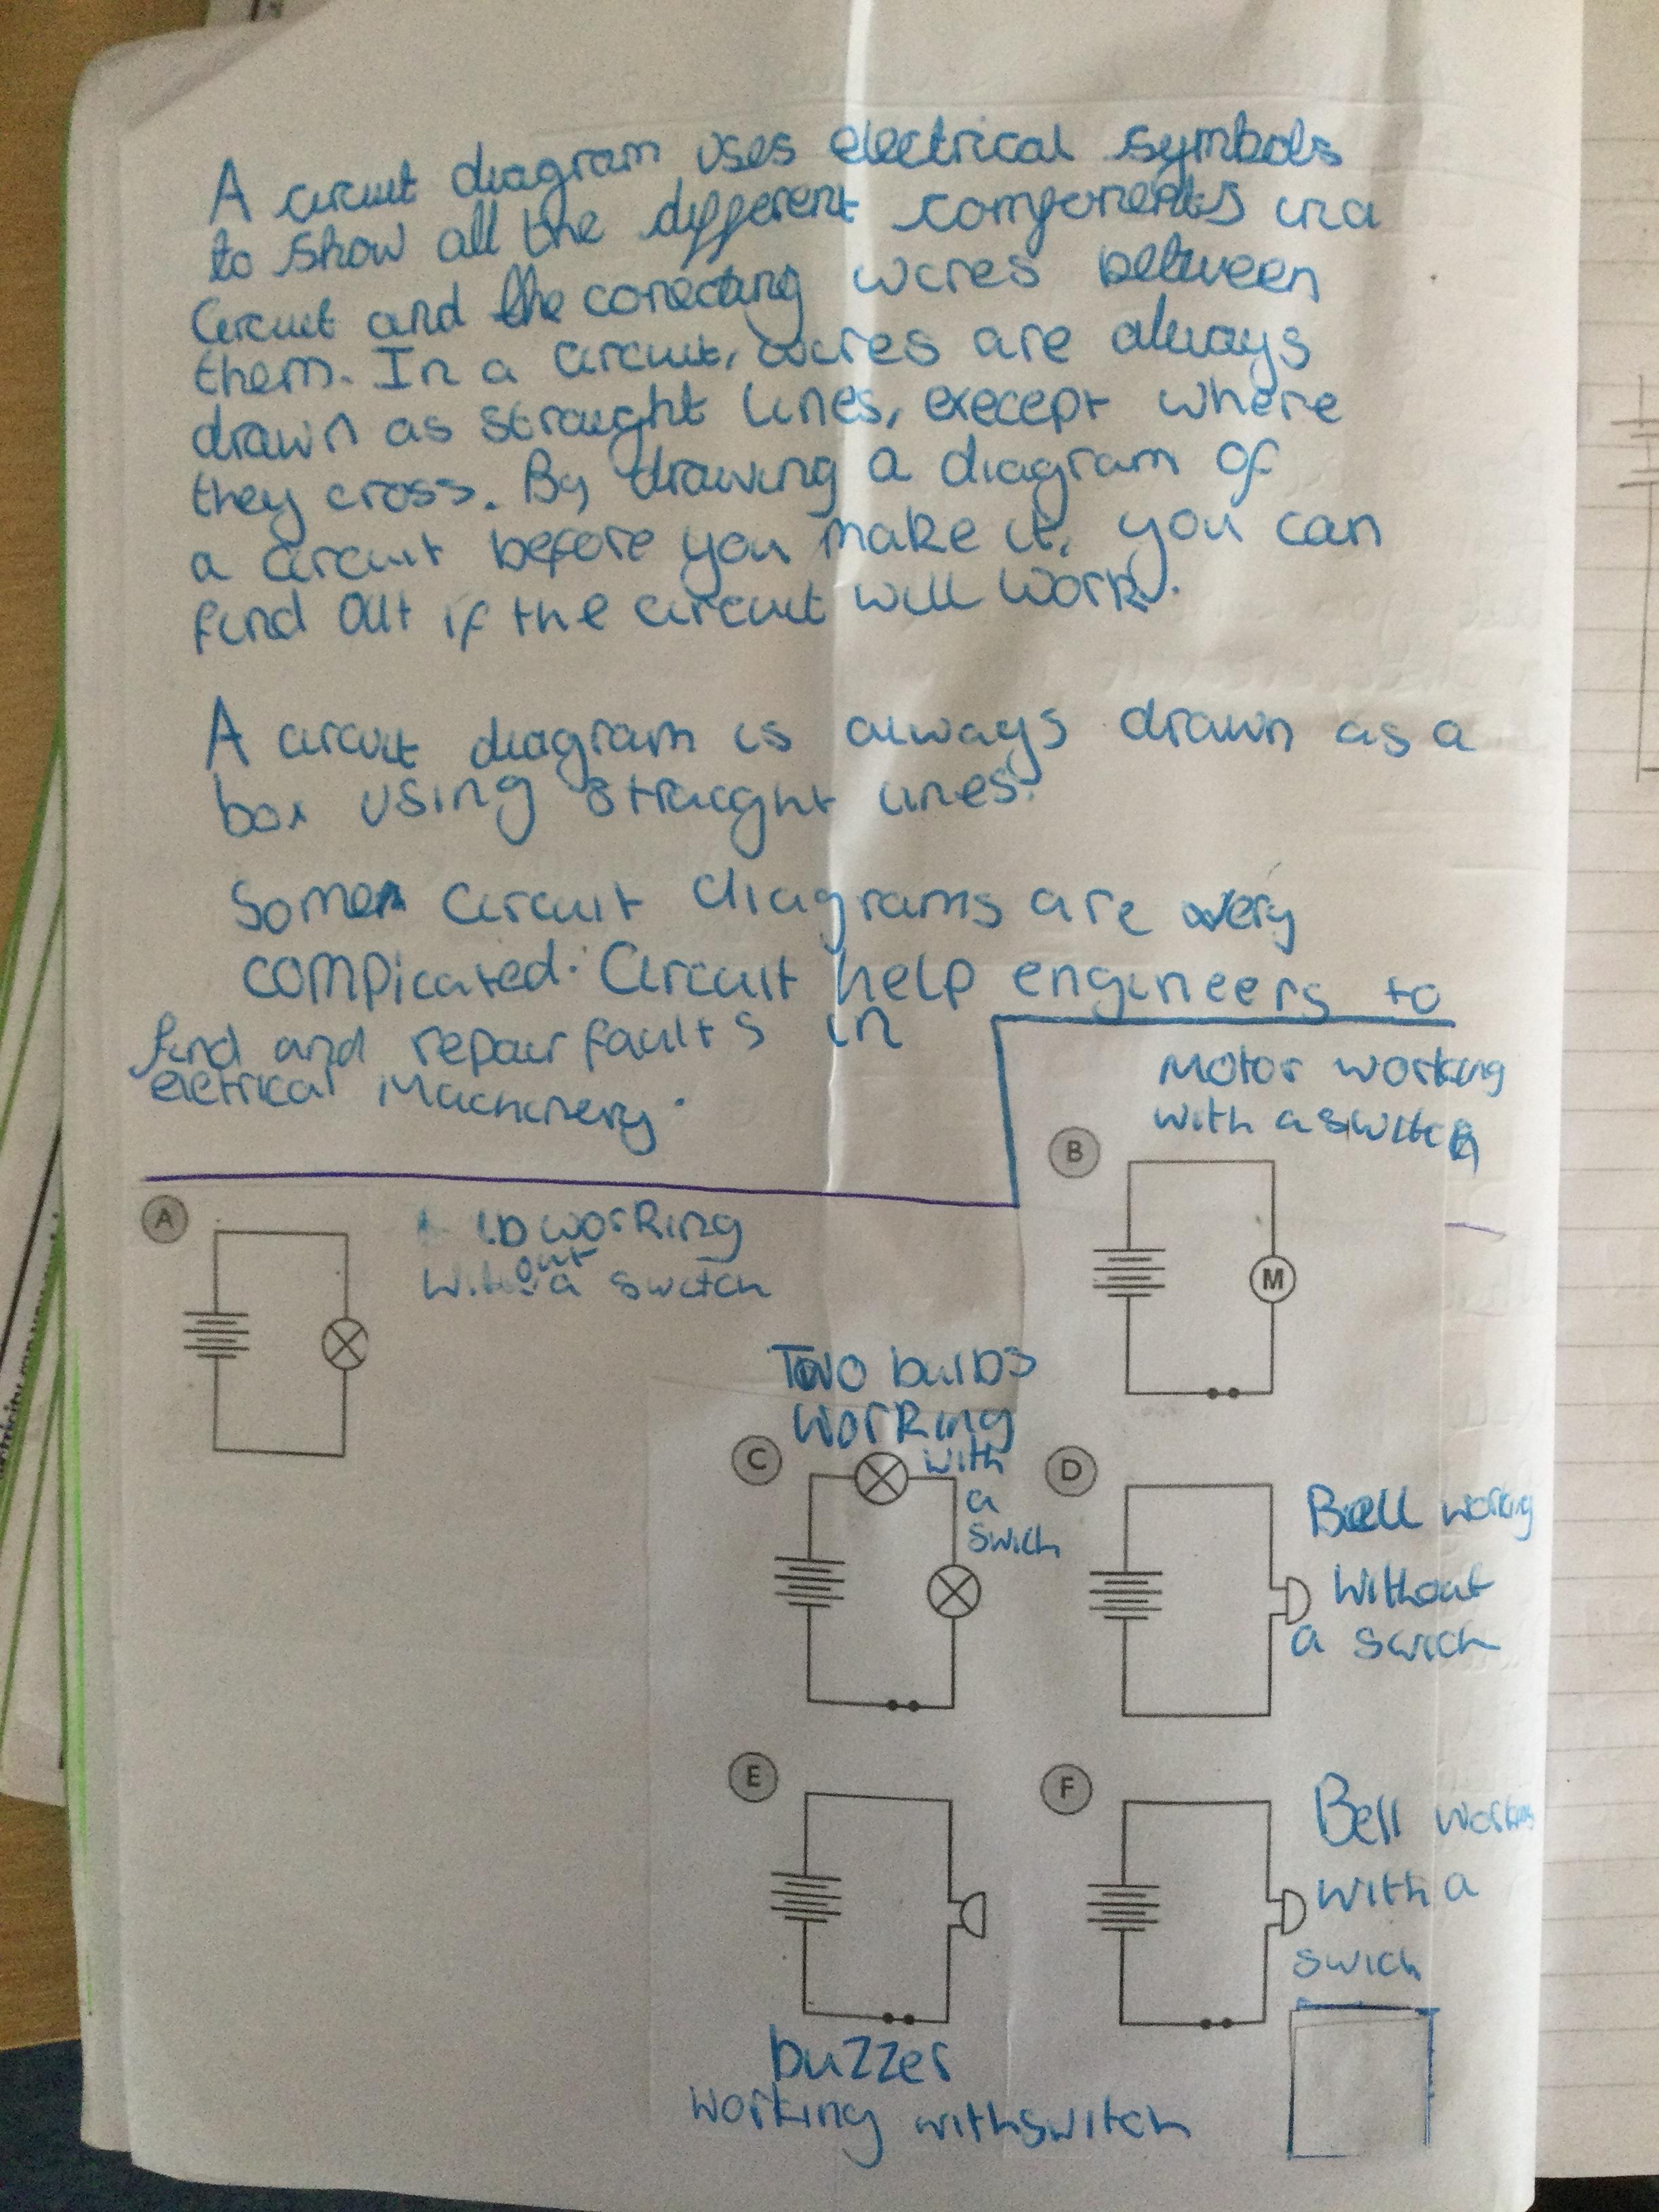 A circuit diagram uses electrical symbols
to show all the different components in a
circuit and the conecting wires between
them. In a circuit, wires are always
drawn as straight lines, execept where
they cross. By drawing a diagram of
a circuit before you make it, you can
find out if the circuit will work.
A circuit diagram is always drawn as a
box using straight lines.
Some circuit diagrams are very
compicated. Circuit help engineers to
find and repair faults in
eletrical Machinery.
Motor working
with a switch
B
M
A
working
without a switch
Two bulbs
working
with
a
swich
C
D
Bell working
without
a swich
E
F
Bell working
with a
swich
buzzer
working with switch